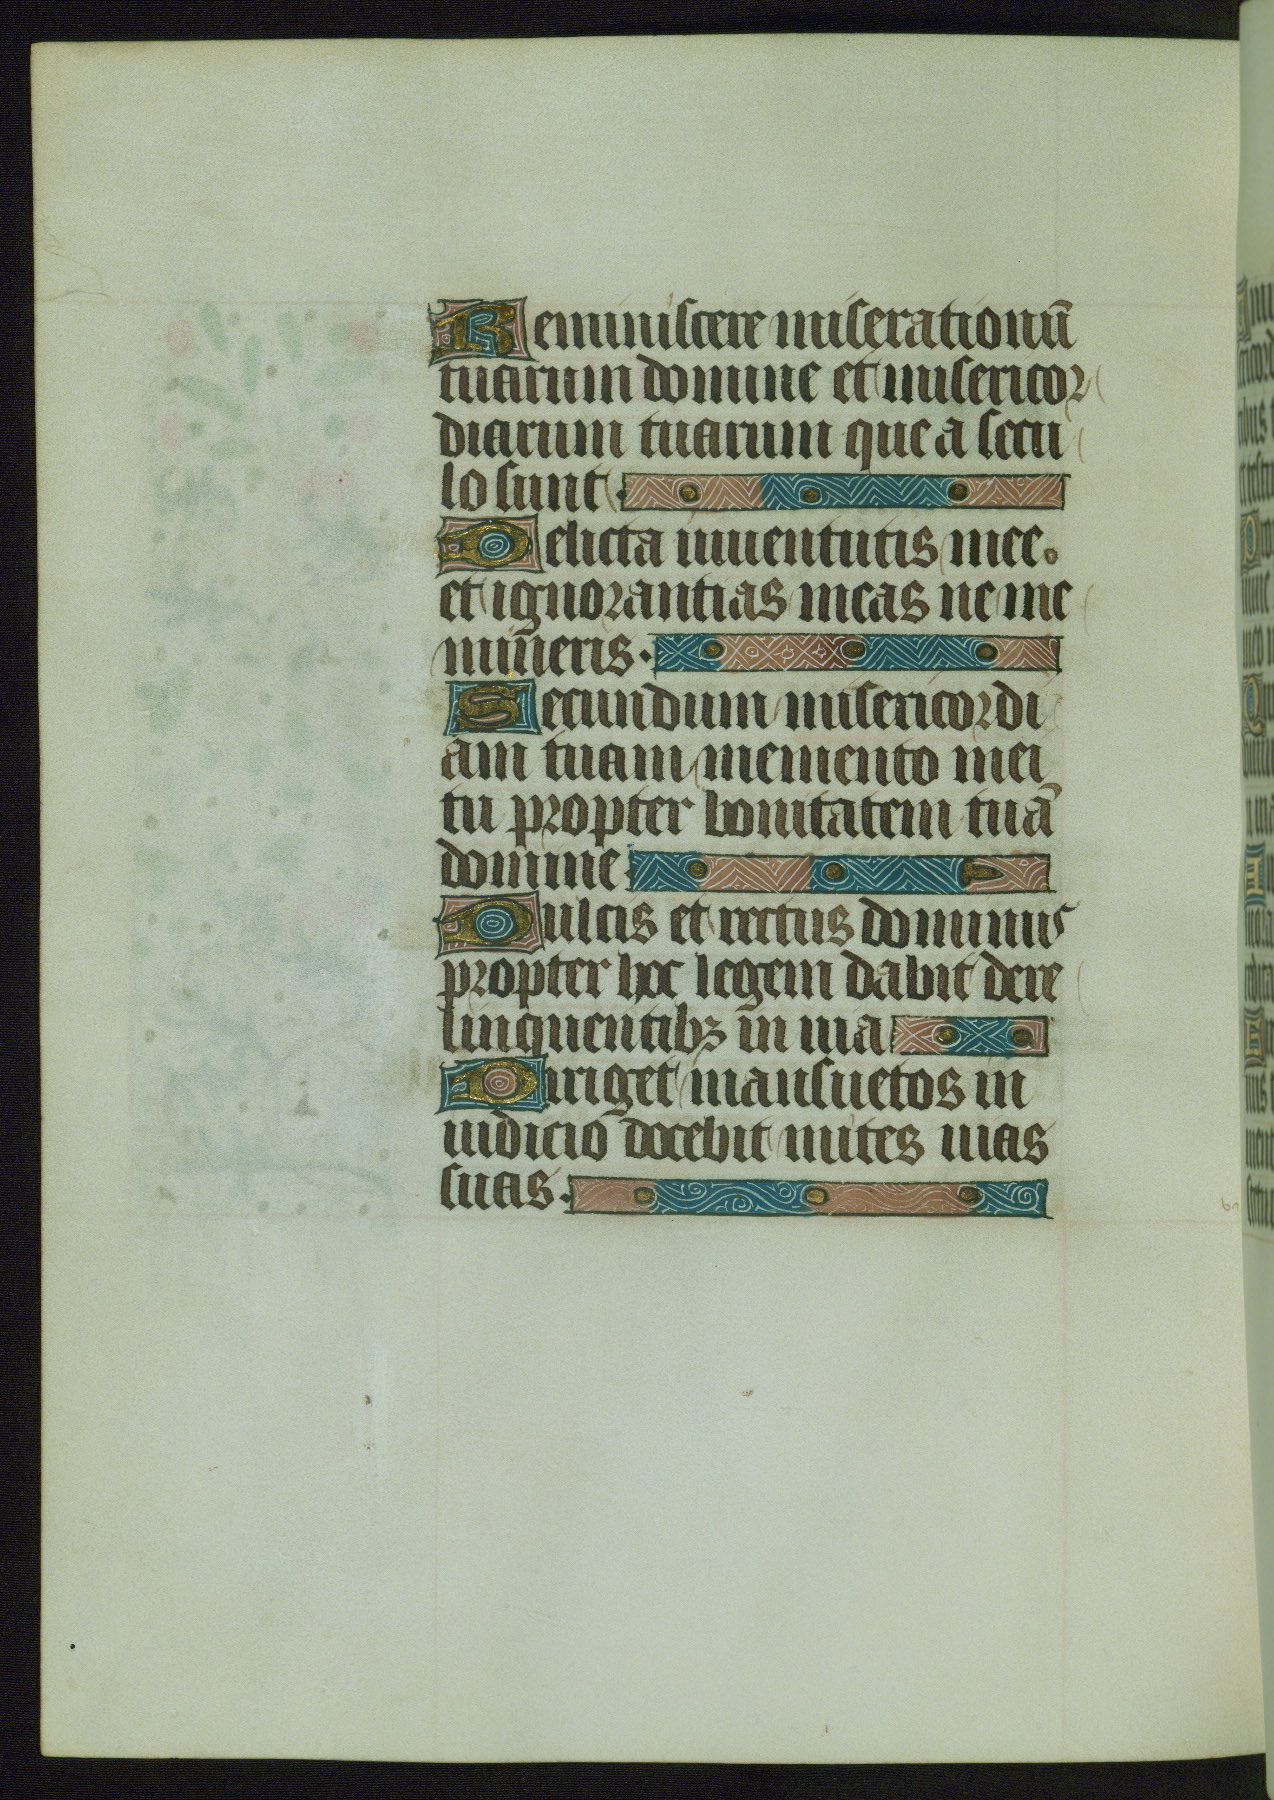 Reminiscere miserationū
tuarum domine et misericor
diarum tuarum que a secu
lo sunt.
Delicta iuuentutis mee.
et ignorantias meas ne me
mineris.
Secundum misericordi
am tuam memento mei
tu propter bonitatem tuā
domine.
Dulcis et rectus dominus
propter hoc legem dabit dere
linquentibꝫ in uia
Diriget mansuetos in
iudicio docebit mites uias
suas.